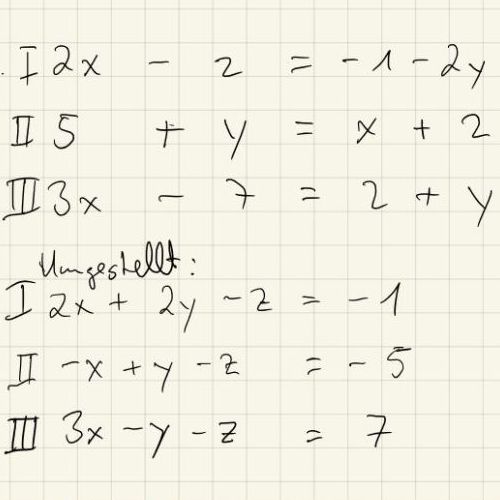 I 2x - z = -1 - 2y
II 5 + y = x + z
III 3x - 7 = z + y
Umgestellt:
I 2x + 2y - z = -1
II -x + y - z = -5
III 3x - y - z = 7